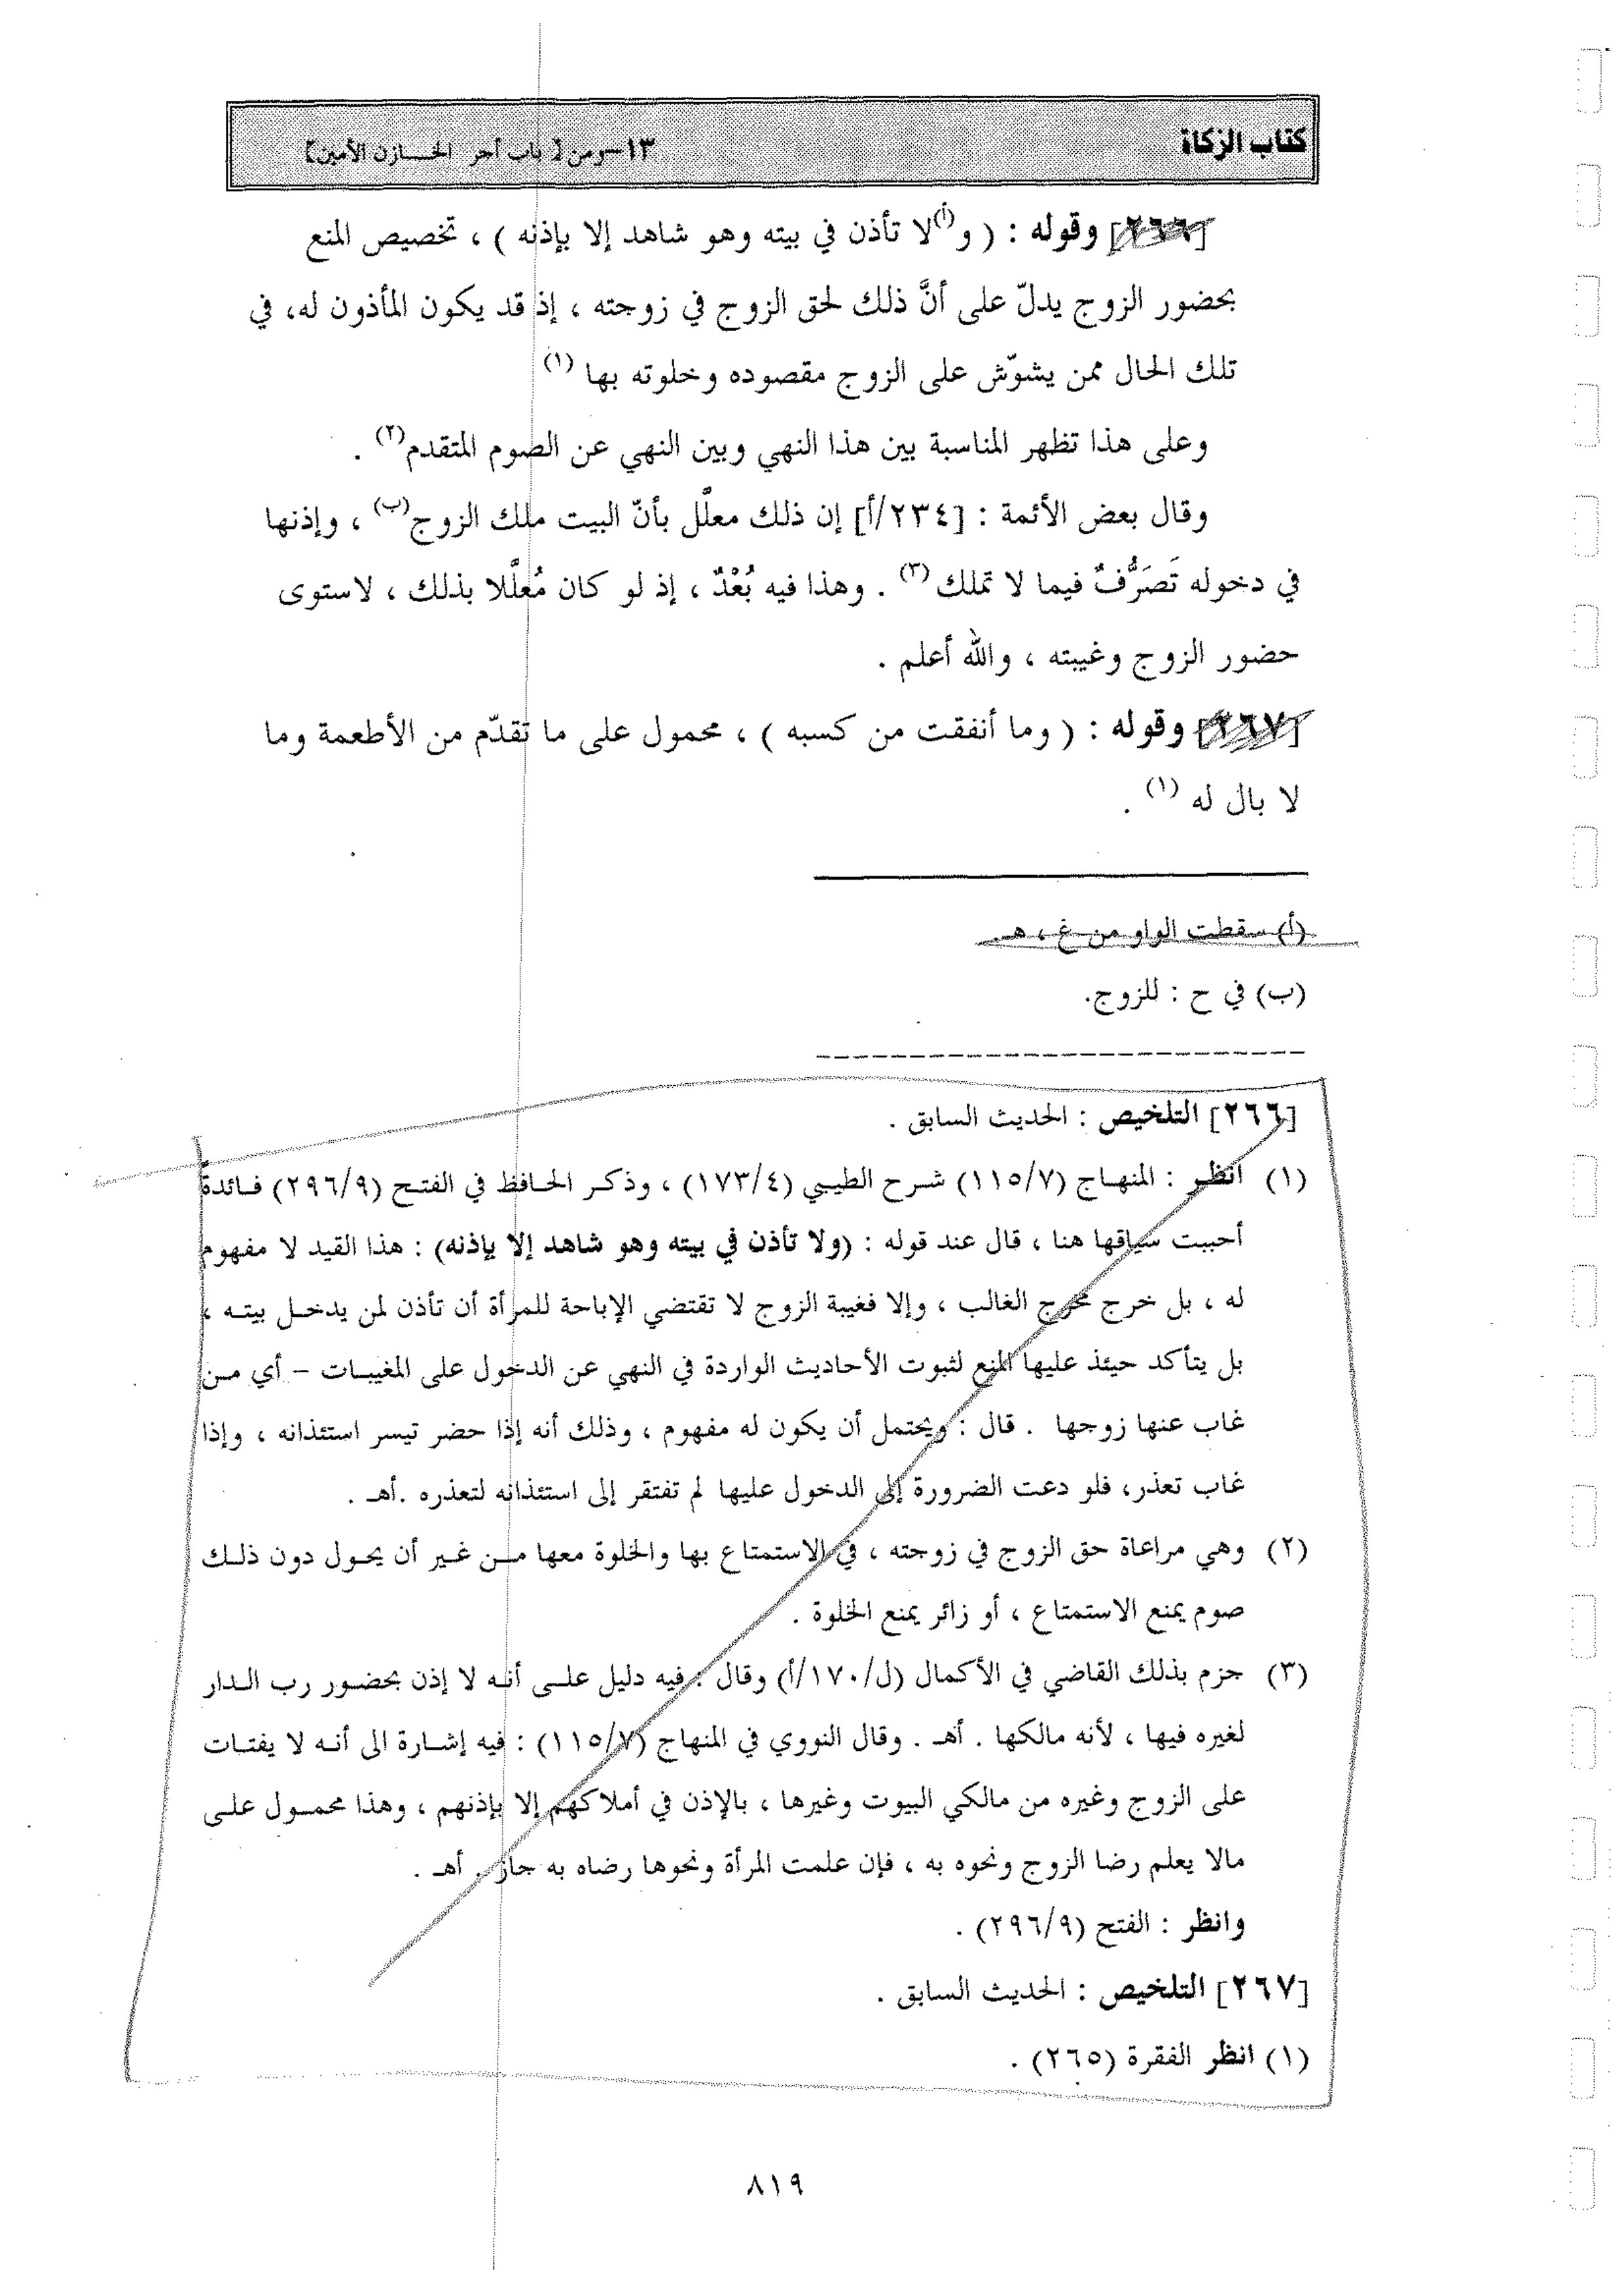 كتاب الزكاة
١٣-ومن [ باب أجر الخـــازن الأمين]
[٢٦٦] وقوله : ( و(أ)لا تأذن في بيته وهو شاهد إلا بإذنه ) ، تخصيص المنع
بحضور الزوج يدلّ على أنَّ ذلك لحق الزوج في زوجته ، إذ قد يكون المأذون له، في
تلك الحال ممن يشوّش على الزوج مقصوده وخلوته بها (١)
وعلى هذا تظهر المناسبة بين هذا النهي وبين النهي عن الصوم المتقدم(٢) .
وقال بعض الأئمة : [٢٣٤/أ] إن ذلك معلَّل بأنّ البيت ملك الزوج(ب) ، وإذنها
في دخوله تَصَرُّفٌ فيما لا تملك (٣) . وهذا فيه بُعْدٌ ، إذ لو كان مُعلَّلا بذلك ، لاستوى
حضور الزوج وغيبته ، والله أعلم .
[٢٦٧] وقوله : ( وما أنفقت من كسبه ) ، محمول على ما تقدّم من الأطعمة وما
لا بال له (١) .
(أ) سقطت الواو من غ ، هـ.
(ب) في ح : للزوج.
[٢٦٦] التلخيص : الحديث السابق .
(١) انظر : المنهاج (١١٥/٧) شرح الطيبي (١٧٣/٤) ، وذكر الحافظ في الفتح (٢٩٦/٩) فائدةً
أحببت سياقها هنا ، قال عند قوله : (ولا تأذن في بيته وهو شاهد إلا بإذنه) : هذا القيد لا مفهوم
له ، بل خرج مخرج الغالب ، وإلا فغيبة الزوج لا تقتضي الإباحة للمرأة أن تأذن لمن يدخل بيته ،
بل يتأكد حيئذ عليها المنع لثبوت الأحاديث الواردة في النهي عن الدخول على المغيبات – أي من
غاب عنها زوجها . قال : ويحتمل أن يكون له مفهوم ، وذلك أنه إذا حضر تيسر استئذانه ، وإذا
غاب تعذر، فلو دعت الضرورة إلى الدخول عليها لم تفتقر إلى استئذانه لتعذره .أهـ .
(٢) وهي مراعاة حق الزوج في زوجته ، في الاستمتاع بها والخلوة معها من غير أن يحول دون ذلك
صوم يمنع الاستمتاع ، أو زائر يمنع الخلوة .
(٣) جزم بذلك القاضي في الأكمال (ل/١٧٠/أ) وقال : فيه دليل على أنه لا إذن بحضور رب الدار
لغيره فيها ، لأنه مالكها . أهـ . وقال النووي في المنهاج (١١٥/٧) : فيه إشارة الى أنه لا يفتات
على الزوج وغيره من مالكي البيوت وغيرها ، بالإذن في أملاكهم إلا بإذنهم ، وهذا محمول على
مالا يعلم رضا الزوج ونحوه به ، فإن علمت المرأة ونحوها رضاه به جاز . أهـ .
وانظر : الفتح (٢٩٦/٩) .
[٢٦٧] التلخيص : الحديث السابق .
(١) انظر الفقرة (٢٦٥) .
٨١٩